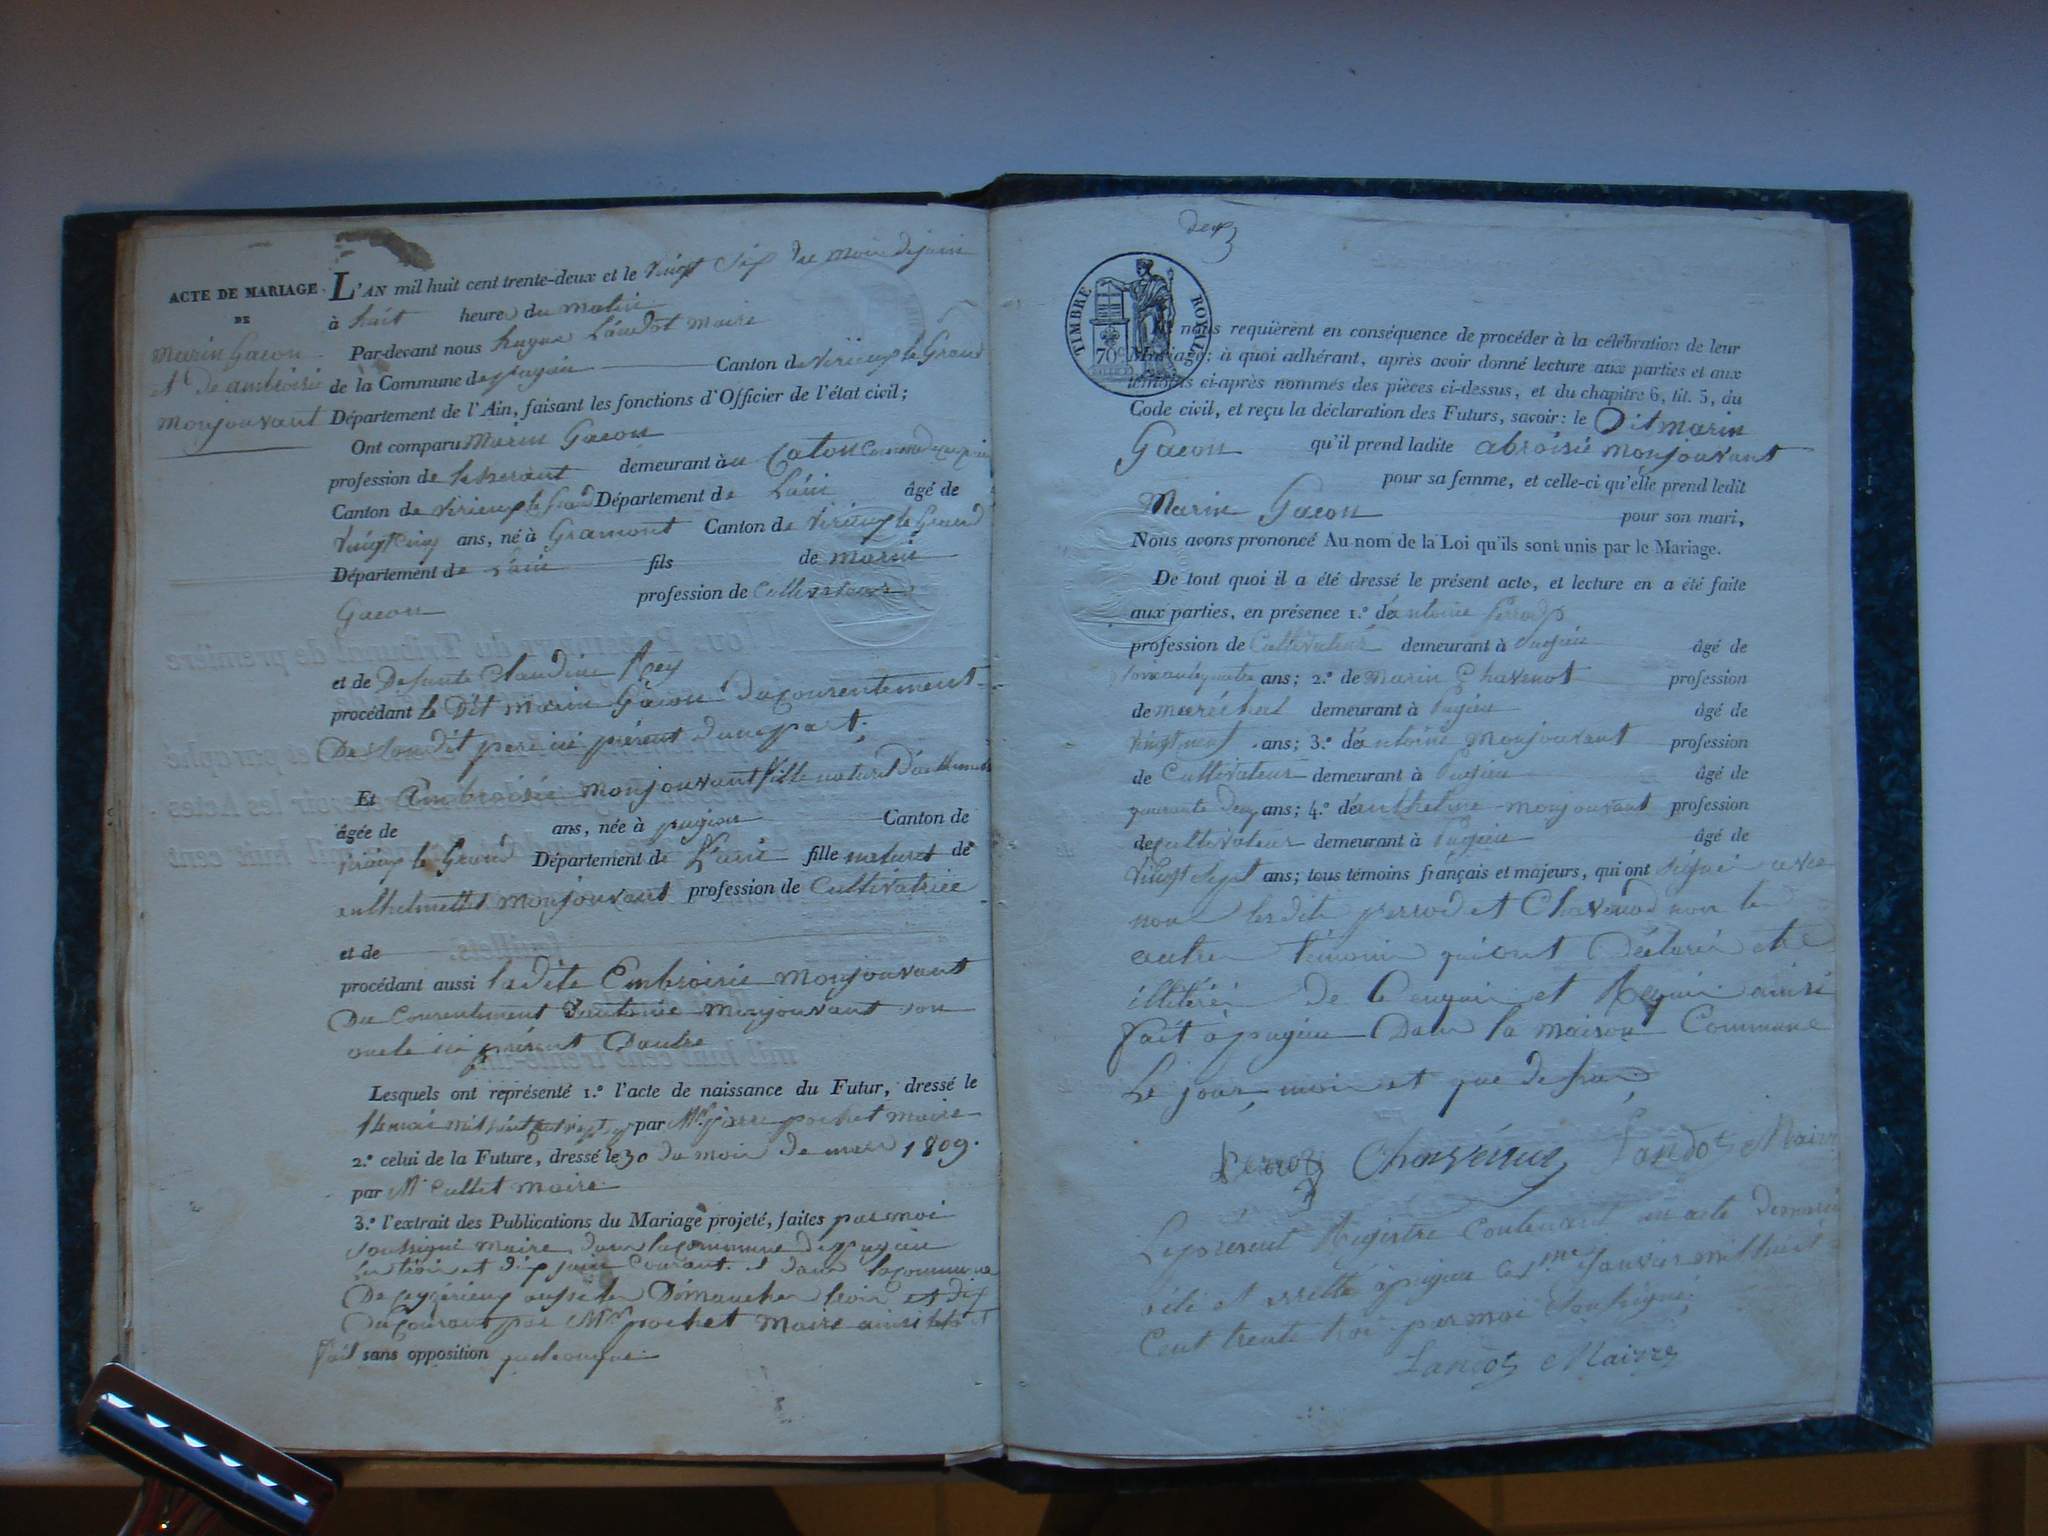 ACTE DE MARIAGE
DE
Marin Gacon
et de ambroisie
monjouvant
L'AN mil huit cent trente-deux et le vingt six du mois de juin
à huit heures du matin
Par-devant nous hugue Landot maire
de la Commune de pugieu Canton de Virieux le Grand
Département de l'Ain, faisant les fonctions d'Officier de l'état civil;
Ont comparu Marin Gacon
profession de demeurant à
Canton de Virieux le Grand Département de L'ain âgé de
vingt cinq ans, né à Gramont Canton de Virieux le Grand
Département de L'ain fils de marin
Gacon profession de Cultivateur
et de Defunte Claudine Rey
procédant le Dit Marin Gacon du Consentement
De Son dit pere ici présent d'une part;
Et Ambroisie monjouvant fille naturel
âgée de ans, née à pugieu Canton de
Virieux le Grand Département de L'ain fille naturel de
anthelmette monjouvant profession de Cultivatrice
et de
procédant aussi ladite Embroisie monjouvant
Du Consentement d'antoine Monjouvant son
oncle ici présent D'autre
Lesquels ont représenté 1.° l'acte de naissance du Futur, dressé le
14 mai mil huit cent sept par Mr pierre pochet maire
2.° celui de la Future, dressé le 30 du mois de mars 1809.
par Mr Cullet maire
3.° l'extrait des Publications du Mariage projeté, faites par moi
soussigné maire dans la commune de pugieu
les trois et dix juin Courant. et dans la commune
De ceyzerieux aussi les Dimanches trois et dix
du Courant par Mr pochet Maire ainsi
fait sans opposition quelconque.
deux
TIMBRE ROYAL
70c
nous requièrent en conséquence de procéder à la célébration de leur
Mariage; à quoi adhérant, après avoir donné lecture aux parties et aux
témoins ci-après nommés des pièces ci-dessus, et du chapitre 6, tit. 5, du
Code civil, et reçu la déclaration des Futurs, savoir: le Dit marin
Gacon qu'il prend ladite abroisie monjouvant
pour sa femme, et celle-ci qu'elle prend ledit
Marin Gacon pour son mari,
Nous avons prononcé Au nom de la Loi qu'ils sont unis par le Mariage.
De tout quoi il a été dressé le présent acte, et lecture en a été faite
aux parties, en présence 1.° de antoine perrod
profession de Cultivateur demeurant à Pugieu âgé de
soixante quatre ans; 2.° de Marin Chavenot profession
de maréchal demeurant à Pugieu âgé de
vingt neuf ans; 3.° d'antoine monjouvant profession
de Cultivateur demeurant à Pugieu âgé de
quarante deux ans; 4.° d'anthelme monjouvant profession
de cultivateur demeurant à Pugieu âgé de
vingt sept ans; tous témoins français et majeurs, qui ont signé avec
nous lesdits perrod et Chavenod non les
autres témoins qui ont Déclaré être
illitéré De Ce enquis et Requis ainsi
fait à pugieu Dans la maison Commune
Le jour, mois et que dessus
Perrod Chavenod Landot Maire
Le present Registre Contenant un acte De mariage
et arretté à pugieu Ce 1er janvier mil huit
Cent trente trois par moi Soussigné.
Landot Maire